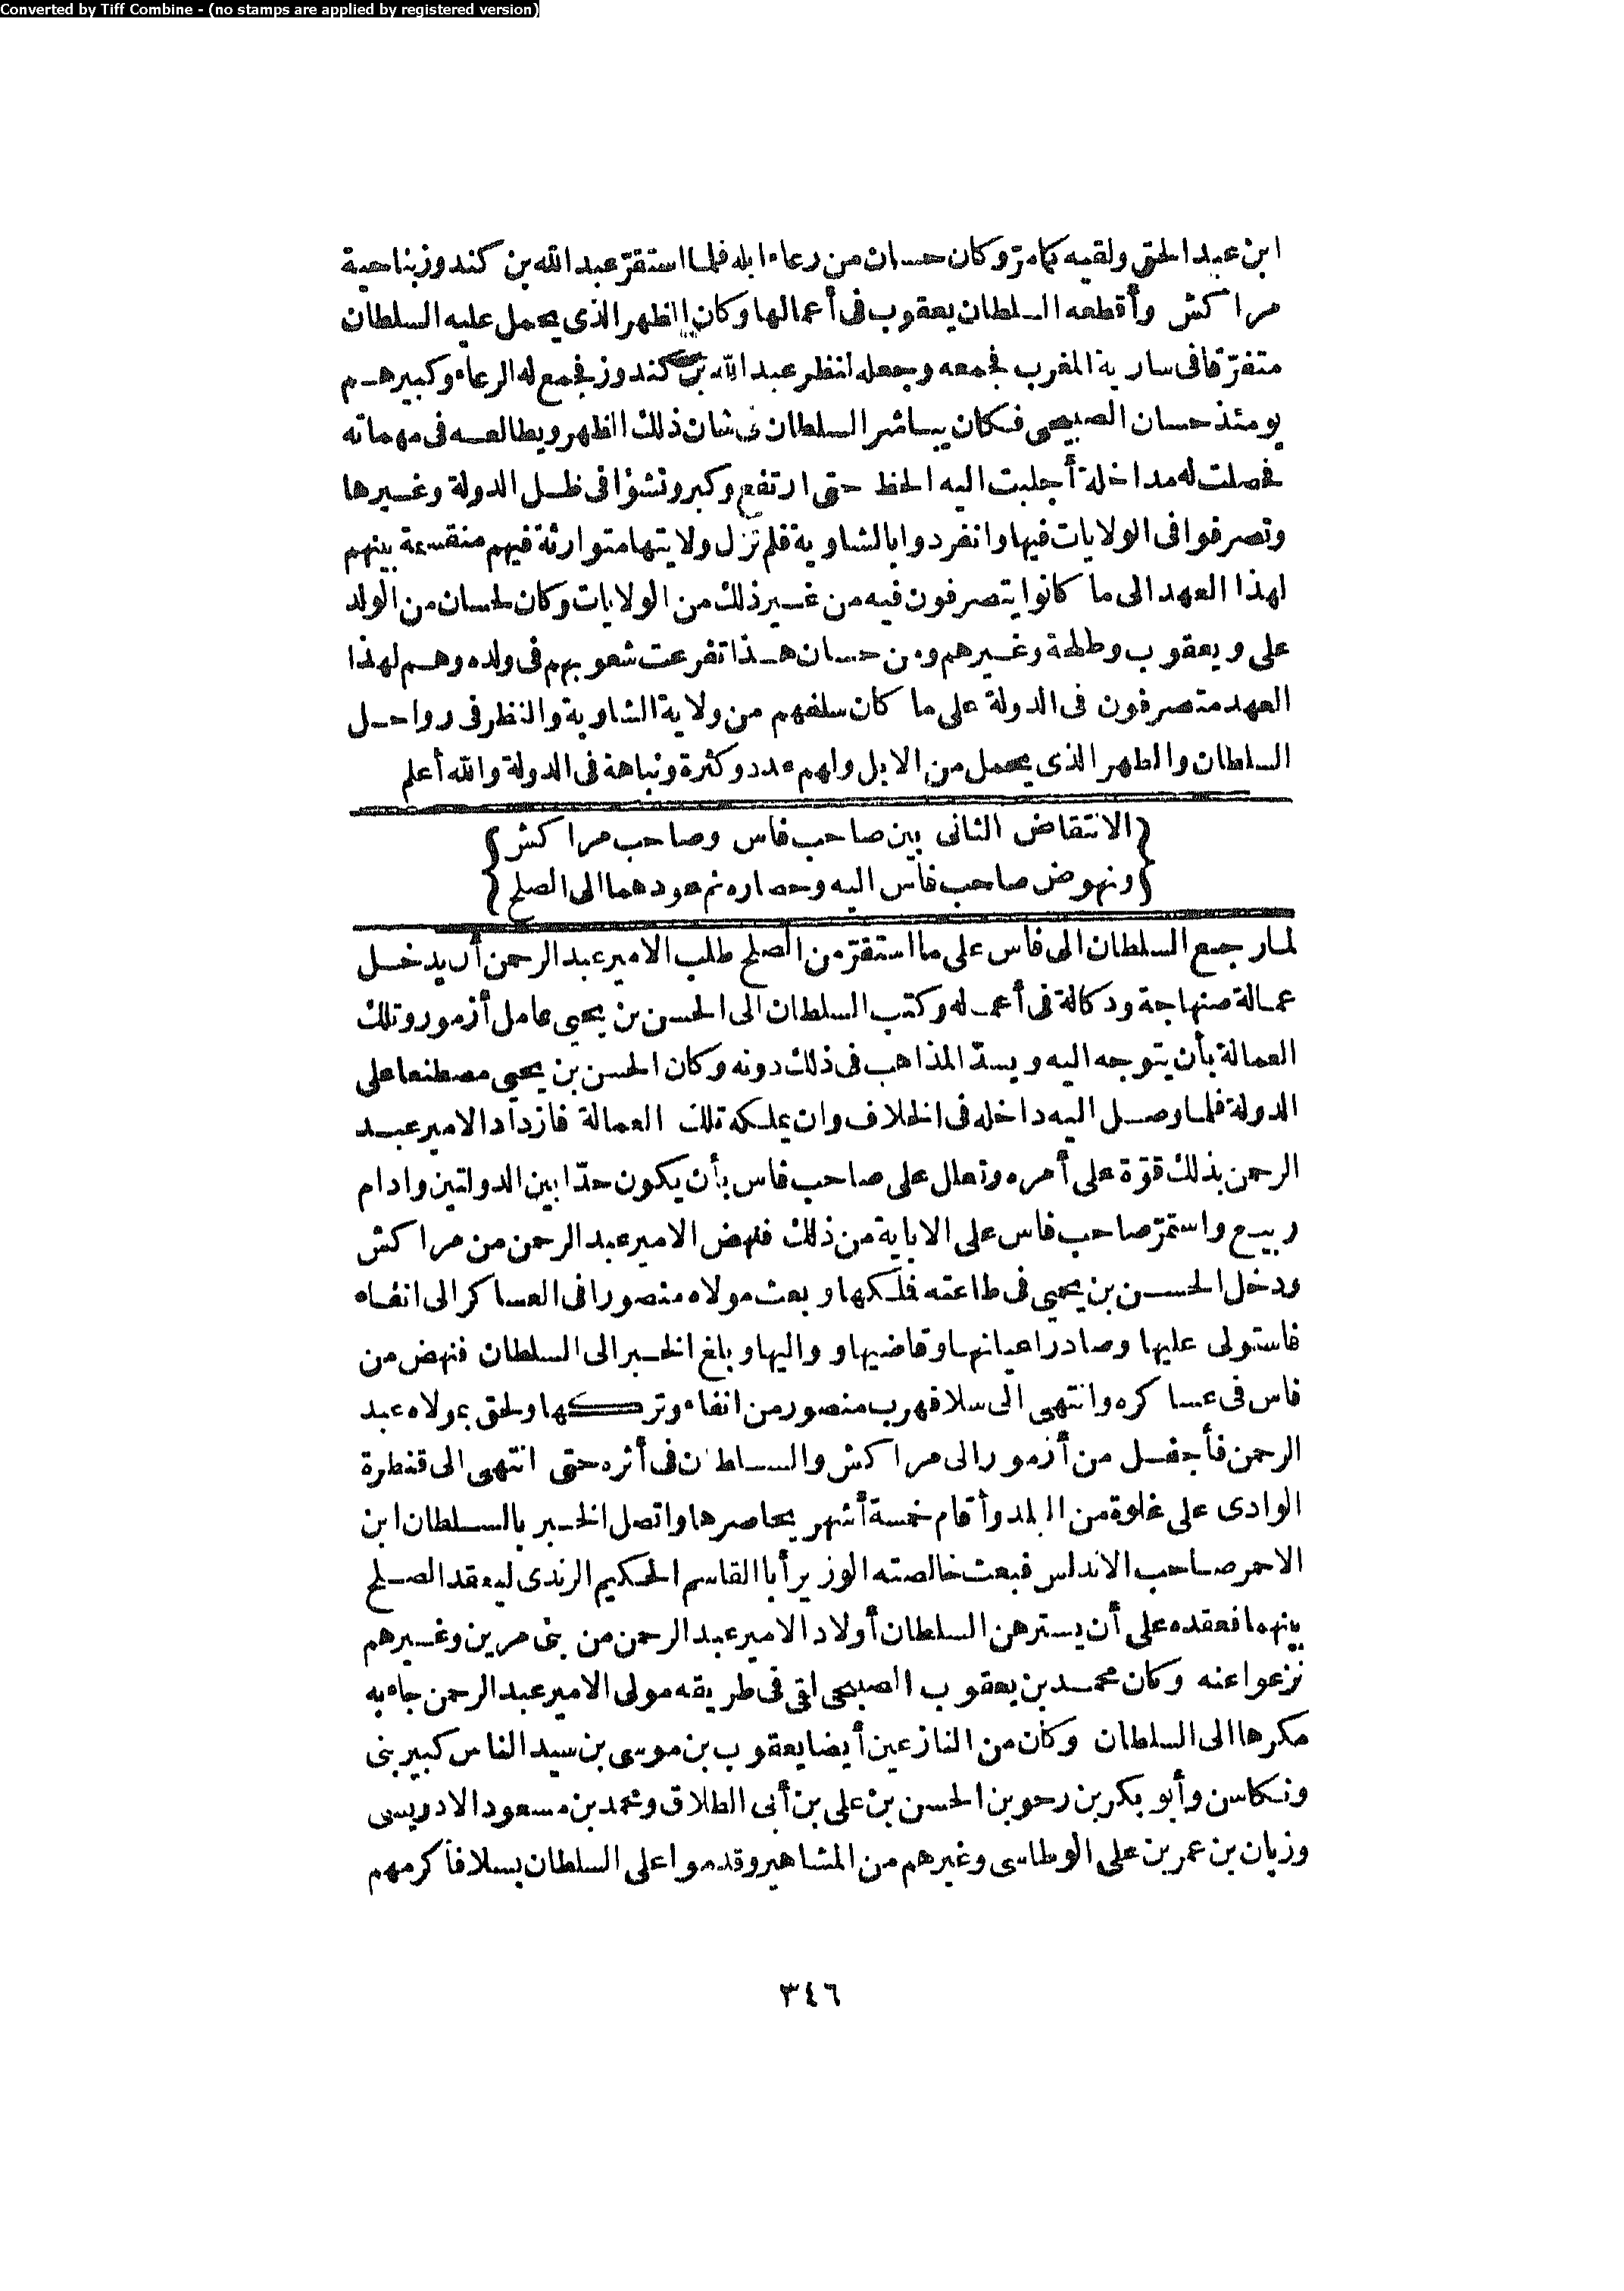 Converted by Tiff Combine - (no stamps are applied by registered version)
ابن عبد الحق ولقيه كما مرّ وكان حسان من رعاء ابله فلما استقرّ عبد الله بن كندوز بناحية
مراكش وأقطعه السلطان يعقوب فى أعمالها وكان الظهر الذى يحمل عليه السلطان
متفرّقا فى سارية المغرب فجمعه وجعله لنظر عبد الله بن كندوز فجمع له الرعاء وكبيرهم
يومئذ حسان الصبيحى فكان يباشر السلطان فى شان ذلك الظهر ويطالعه فى مهماته
فحصلت له مداخلة أجلبت اليه الحظ حتى ارتفع وكبر ونشؤا فى ظل الدولة وغيرها
وتصرفوا فى الولايات فيها وانفردوا بالشاوية فلم تزل ولايتها متوارثة فيهم منقسمة بينهم
لهذا العهد الى ما كانوا يتصرفون فيه من غير ذلك من الولايات وكان لحسان من الولد
على ويعقوب وطلحة وغيرهم ومن حسان هذا تفرعت شعوبهم فى ولده وهم لهذا
العهد متصرفون فى الدولة على ما كان سلفهم من ولاية الشاوية والنظر فى رواحل
السلطان والظهر الذى يحمل من الابل ولهم عدد وكثرة ونباهة فى الدولة والله أعلم
{الانتقاض الثانى بين صاحب فاس وصاحب مراكش}
{ونهوض صاحب فاس اليه وحصاره ثم عودهما الى الصلح}
لما رجع السلطان الى فاس على ما استقرّ من الصلح طلب الامير عبد الرحمن أن يدخل
عمالة صنهاجة ودكالة فى أعماله وكتب السلطان الى الحسن بن يحيى عامل أزمور وتلك
العمالة بأن يتوجه اليه ويسدّ المذاهب فى ذلك دونه وكان الحسن بن يحيى مصطنعا على
الدولة فلما وصل اليه داخله فى الخلاف وان يملكه تلك العمالة فازداد الامير عبد
الرحمن بذلك قوّة على أمره وتعلل على صاحب فاس بأن يكون حدّا بين الدولتين وادام
ربيع واستمرّ صاحب فاس على الاباية من ذلك فنهض الامير عبد الرحمن من مراكش
ودخل الحسن بن يحيى فى طاعته فلكها وبعث مولاه منصورا فى العساكر الى انفاه
فاستولى عليها وصادر اعيانها وقاضيها وواليها وبلغ الخبر الى السلطان فنهض من
فاس فى عساكره وانتهى الى سلا فهرب منصور من انفاء وتركها ولحق بمولاه عبد
الرحمن فأجفل من أزمور الى مراكش والسلطان فى أثره حتى انتهى الى قنطرة
الوادى على غلوة من البلد وأقام خمسة أشهر يحاصرها واتصل الخبر بالسلطان ابن
الاحمر صاحب الاندلس فبعث خالصته الوزير أبا القاسم الحكيم الرندى ليعقد الصلح
بينهما فعقده على أن يسترهن السلطان أولاد الامير عبد الرحمن من بنى مرين وغيرهم
نزعوا عنه وكان محمد بن يعقوب الصبيحى لقى فى طريقه مولى الامير عبد الرحمن جاء به
مكرها الى السلطان وكان من النازعين أيضا يعقوب بن موسى بن سيد الناس كبير بنى
ونكاسن وأبو بكر بن رحو بن الحسن بن على بن أبى الطلاق ومحمد بن مسعود الادريسى
وزيان بن عمر بن على الوطاسى وغيرهم من المشاهير وقدموا على السلطان بسلا فأكرمهم
٣٤٦